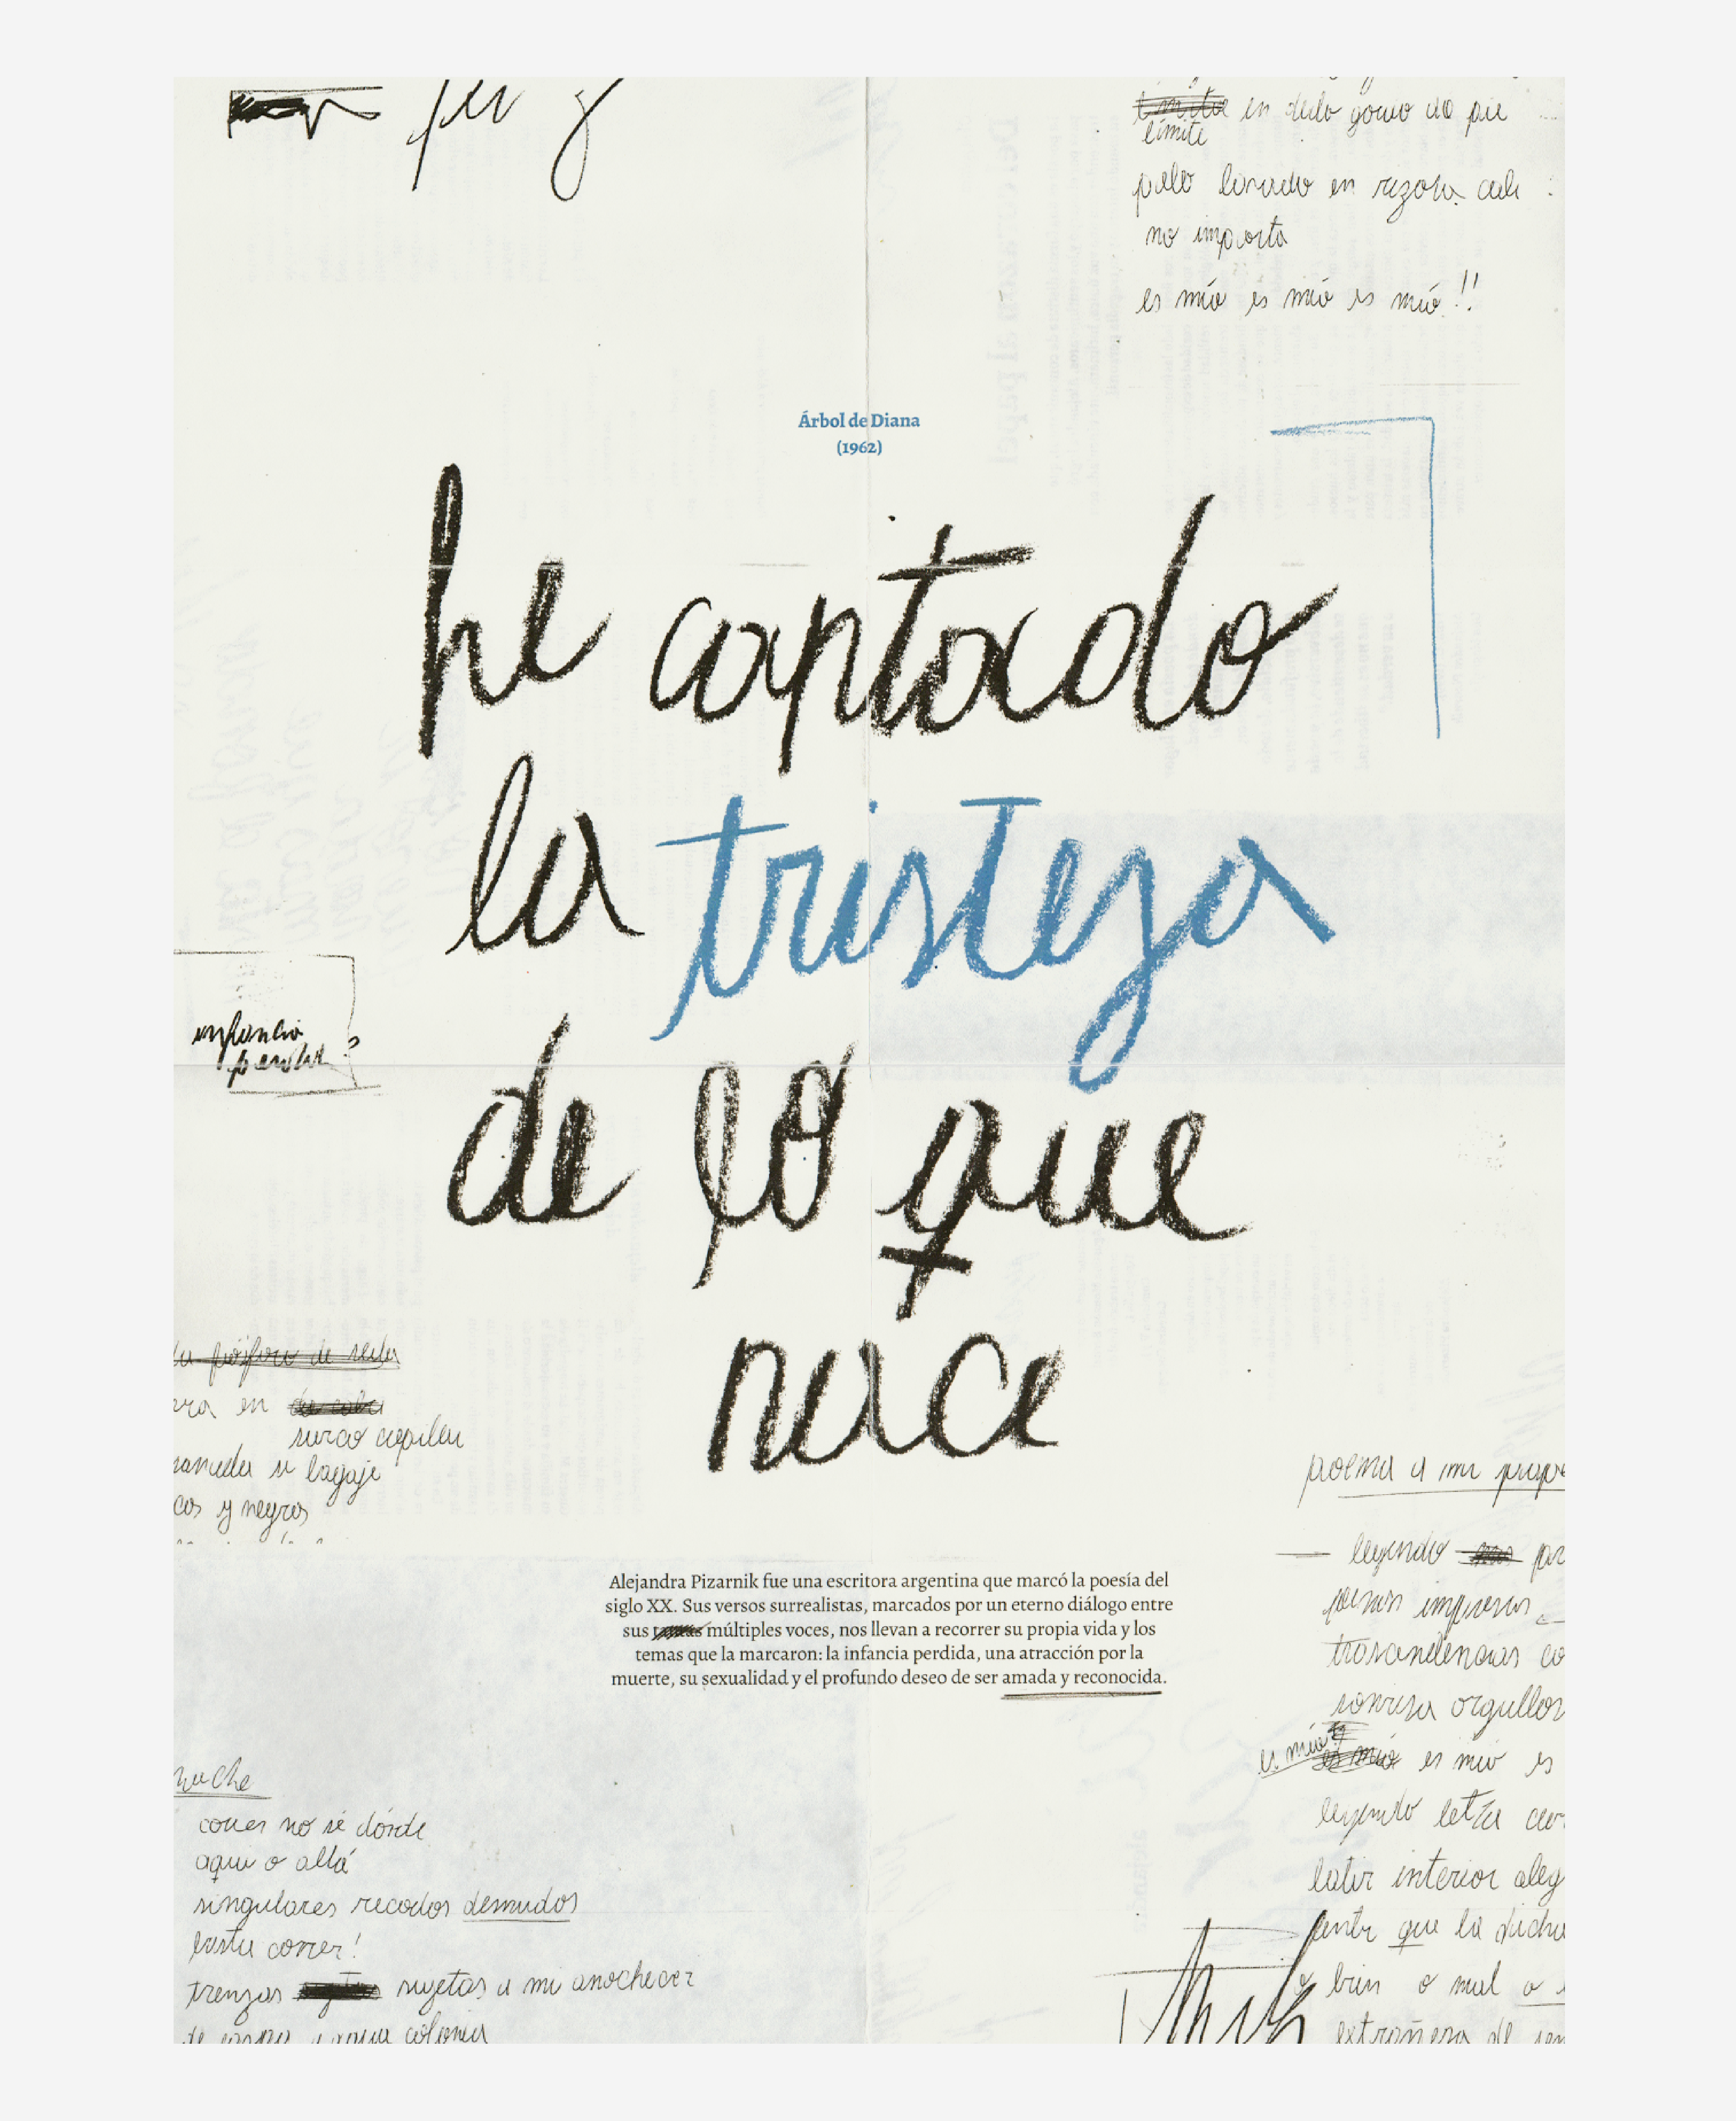 límite en dedo gordo de pie
palo lavado en
no importa
es mío es mío es mío!!
Árbol de Diana
(1962)
he captado
la tristeza
de lo que
nace
infancia
en
surco capilar
bagaje
cos y negros
poema a mi
leyendo
poemas impresos
trascendencias co
sonrisa orgullos
es mío!
es mío es mío es
leyendo letra
latir interior aleg
que la dicha
o bien o mal o
extrañeza de
Alejandra Pizarnik fue una escritora argentina que marcó la poesía del
siglo XX. Sus versos surrealistas, marcados por un eterno diálogo entre
sus múltiples voces, nos llevan a recorrer su propia vida y los
temas que la marcaron: la infancia perdida, una atracción por la
muerte, su sexualidad y el profundo deseo de ser amada y reconocida.
noche
correr no sé dónde
aquí o allá
singulares recodos desnudos
basta correr!
trenzas sujetas a mi anochecer
colonia